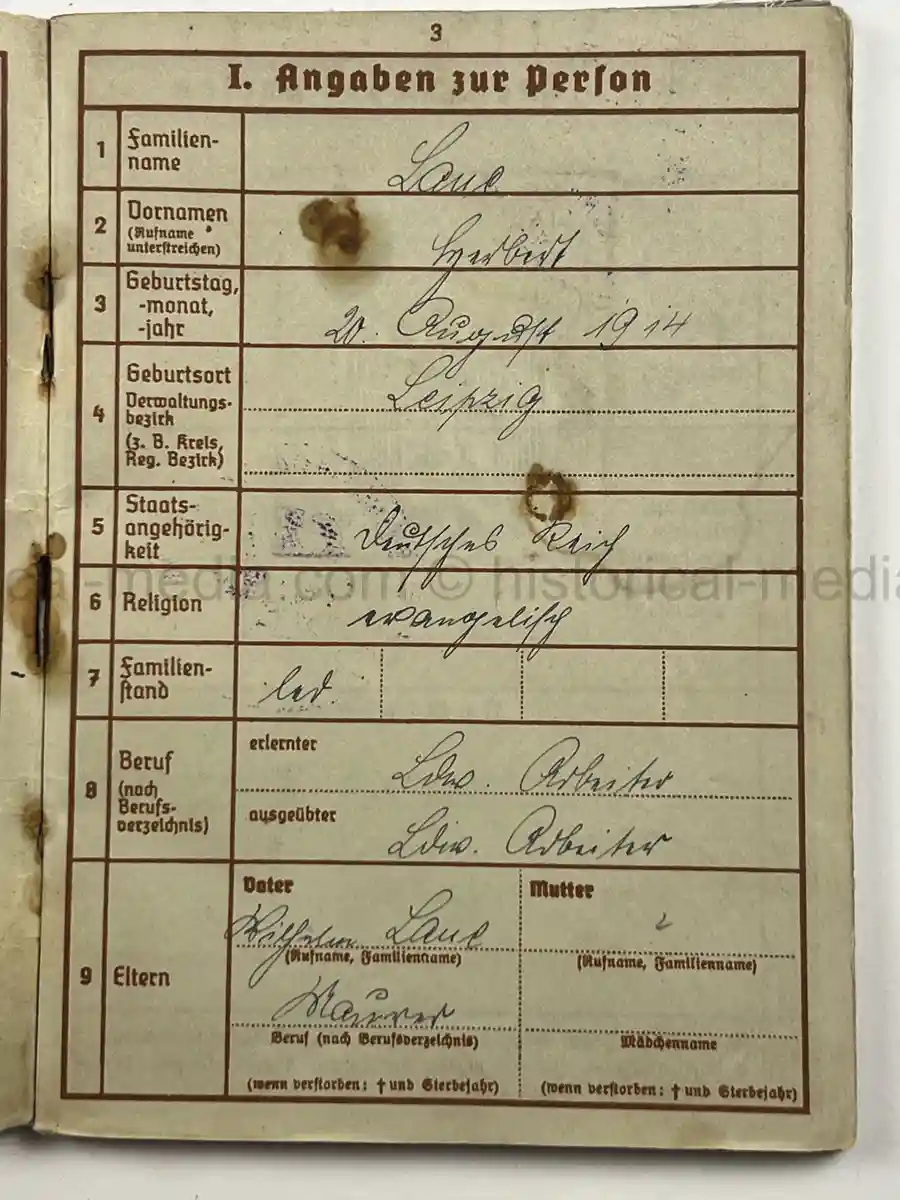 3
I. Angaben zur Person
1
Familien-
name
2
Vornamen
(Rufname
unterstreichen)
Herbert
3
Geburtstag,
-monat,
-jahr
20. August 1914
4
Geburtsort
Verwaltungs-
bezirk
(z. B. Kreis,
Reg. Bezirk)
Leipzig
5
Staats-
angehörig-
keit
Deutsches Reich
cal-media.com © historical-media
6
Religion
evangelisch
7
Familien-
stand
led.
8
Beruf
(nach
Berufs-
verzeichnis)
erlernter
Ldw. Arbeiter
ausgeübter
Ldw. Arbeiter
9
Eltern
Vater
Wilhelm
(Rufname, Familienname)
Maurer
Beruf (nach Berufsverzeichnis)
(wenn verstorben: † und Sterbejahr)
Mutter
(Rufname, Familienname)
Mädchenname
(wenn verstorben: † und Sterbejahr)